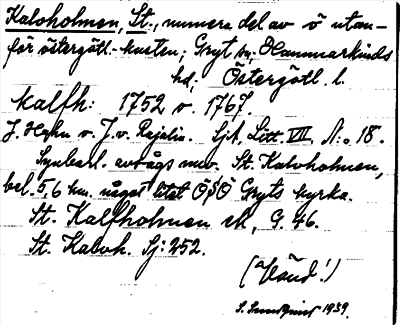 Kalvholmen, St., numera del av ö utan-
för östergötl.-kusten; Gryt sn, Hammarkinds
hd, Östergötl. l.
Kalfh: 1752 o. 1767.
J. Hahn o. J. v. Rajalin. Sjk. Litt. VII, N:o 18.
Synbarl. avsågs nuv. St. Kalvholmen,
bel. 5,6 km. något litet ÖSÖ Gryts kyrka.
St. Kalfholmen ek, G. 46.
St. Kalvh. Sj: 252.
(Vänd!)
S. Sundquist 1939.